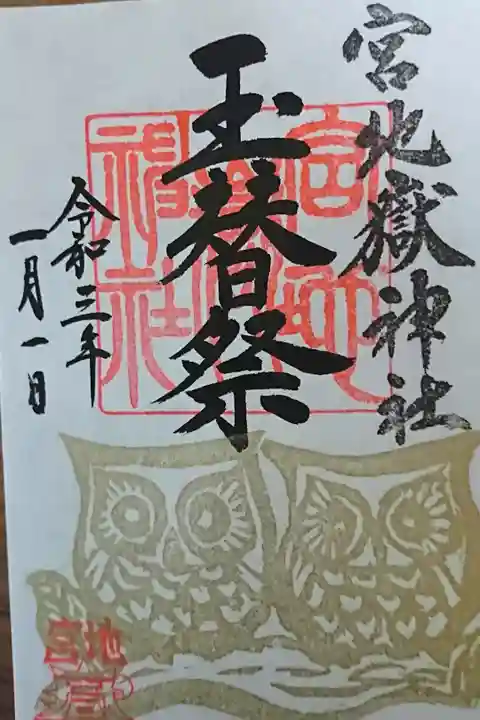 宮地嶽神社
玉替祭
令和三年
一月一日
宮地
嶽
神社
宮地